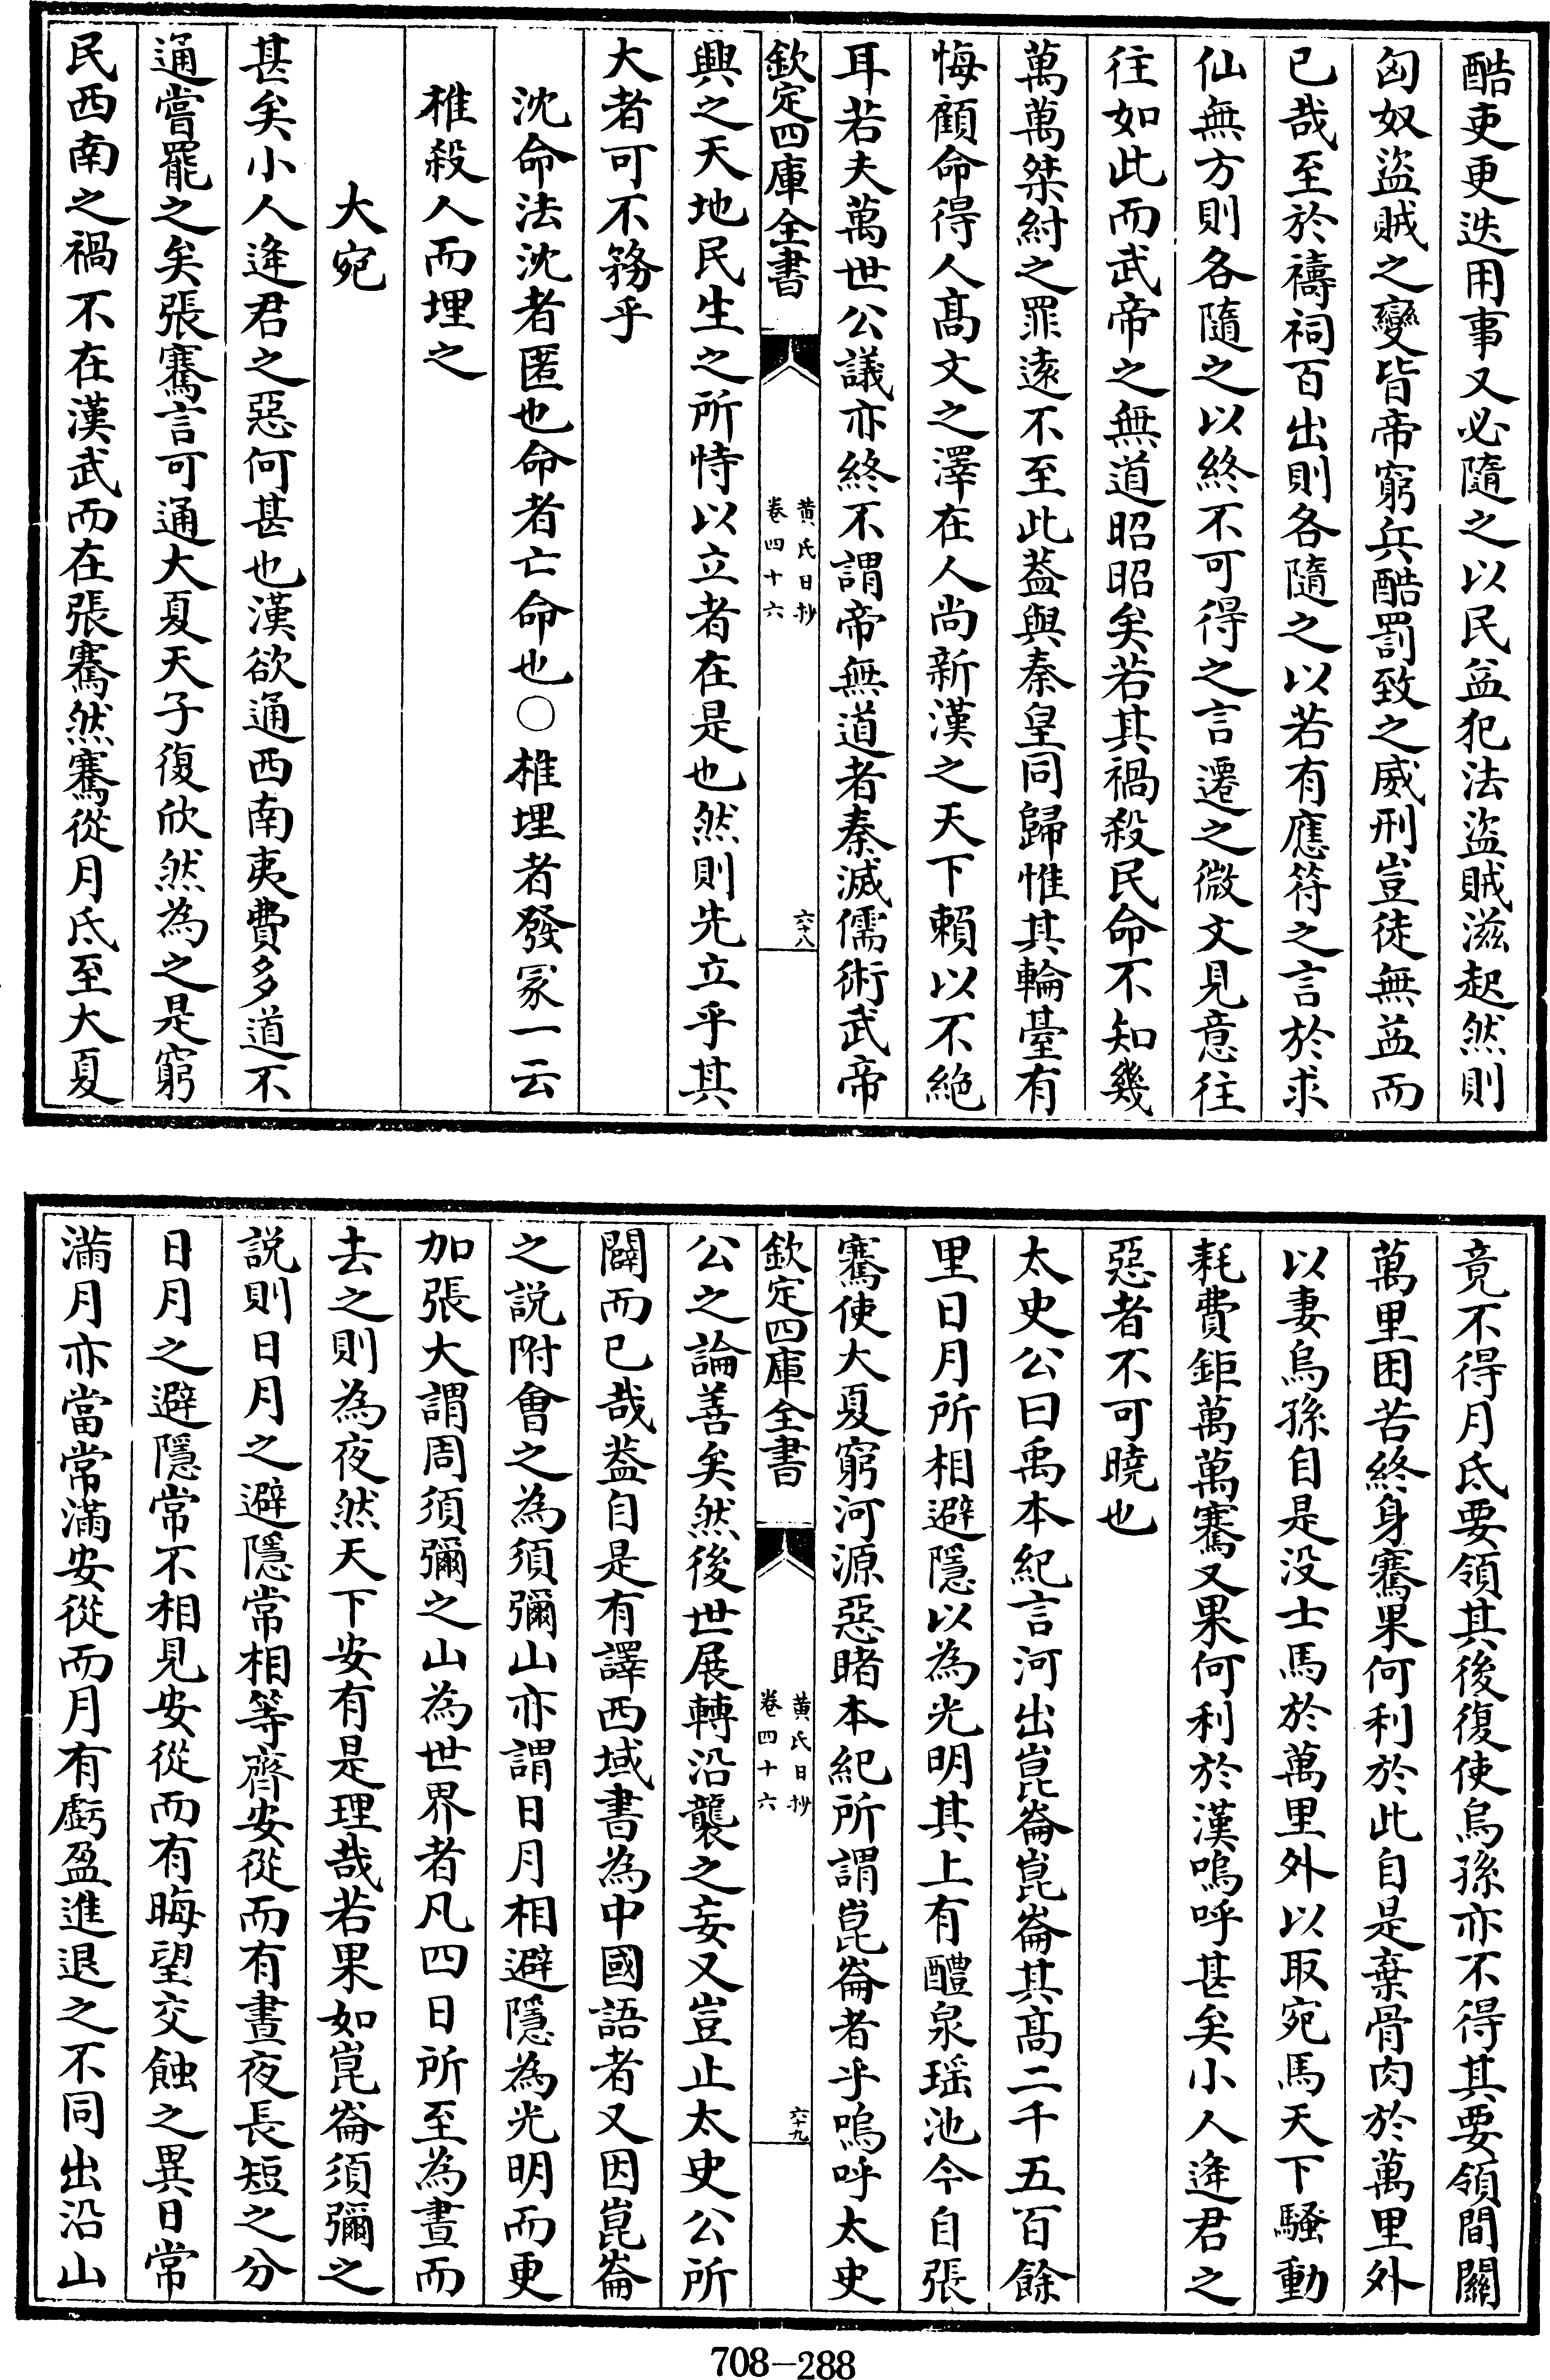 酷吏更迭用事又必隨之以民益犯法盜賊滋起然則
匈奴盜賊之變皆帝窮兵酷罰致之威刑豈徒無益而
已哉至於禱祠百出則各隨之以若有應符之言於求
仙無方則各隨之以終不可得之言遷之微文見意往
往如此而武帝之無道昭昭矣若其禍殺民命不知幾
萬萬桀紂之罪遠不至此葢與秦皇同歸惟其輪臺有
悔顧命得人髙文之澤在人尚新漢之天下賴以不絶
耳若夫萬世公議亦終不謂帝無道者秦滅儒術武帝
欽定四庫全書
黄氏日抄
卷四十六
六十八
興之天地民生之所恃以立者在是也然則先立乎其
大者可不務乎
沈命法沈者匿也命者亡命也○椎埋者發冡一云
椎殺人而埋之
大宛
甚矣小人逢君之惡何甚也漢欲通西南夷費多道不
通嘗罷之矣張騫言可通大夏天子復欣然為之是窮
民西南之禍不在漢武而在張騫然騫從月氐至大夏
竟不得月氐要領其後復使烏孫亦不得其要領間關
萬里困苦終身騫果何利於此自是棄骨肉於萬里外
以妻烏孫自是没士馬於萬里外以取宛馬天下騷動
耗費鉅萬萬騫又果何利於漢嗚呼甚矣小人逢君之
惡者不可曉也
太史公曰禹本紀言河出崑崙崑崙其髙二千五百餘
里日月所相避隱以為光明其上有醴泉瑶池今自張
騫使大夏窮河源惡睹本紀所謂崑崙者乎嗚呼太史
欽定四庫全書
黄氏日抄
卷四十六
六十九
公之論善矣然後世展轉沿襲之妄又豈止太史公所
闢而已哉葢自是有譯西域書為中國語者又因崑崙
之説附會之為須彌山亦謂日月相避隱為光明而更
加張大謂周須彌之山為世界者凡四日所至為晝而
去之則為夜然天下安有是理哉若果如崑崙須彌之
説則日月之避隱常相等齊安從而有晝夜長短之分
日月之避隱常不相見安從而有晦望交蝕之異日常
滿月亦當常滿安從而月有虧盈進退之不同出沿山
708—288